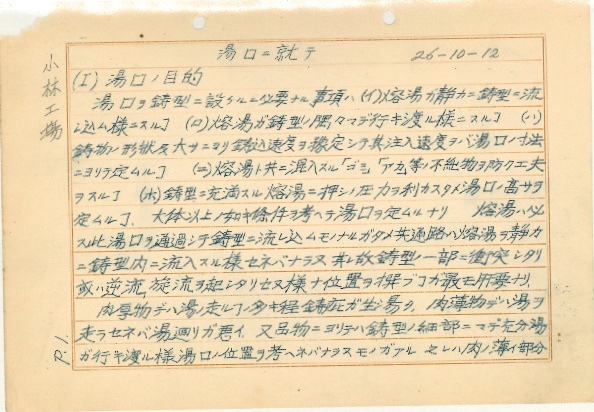 湯口ニ就テ 26-10-12
小林工場
(I) 湯口ノ目的
湯口ヲ鋳型ニ設クルニ必要ナル事項ハ (イ)熔湯ガ静カニ鋳型ニ流
レ込ム様ニスルヿ (ロ)熔湯ガ鋳型ノ隅々マデ行キ渡ル様ニスルヿ (ハ)
鋳物ノ形状及大サニヨリ鋳込速度ヲ鑑定シテ其注入速度ヲバ湯口ノ寸法
ニヨリテ定ムルヿ (ニ)熔湯ト共ニ混入スル「ゴミ」「アカ」等ノ不純物ヲ防グ工夫
ヲスルヿ (ホ)鋳型ニ充満スル熔湯ニ押シノ圧力ヲ利カスタメ湯口ノ高サヲ
定ムルヿ、 大体以上ノ如キ條件ヲ考ヘテ湯口ヲ定ムルナリ 熔湯ハ必
ス此湯口ヲ通過シテ鋳型ニ流レ込ムモノナルガタメ共通路ハ熔湯ヲ静カ
ニ鋳型内ニ流入スル様セネバナラヌ 其故鋳型ノ一部ニ衝突シタリ
或ハ逆流、旋流ヲ起シタリセヌ様ナ位置ヲ撰ブコガ最モ肝要ナリ、
肉厚物デハ湯ノ走ルヿノ多キ程鋳疵ガ生シ易ク、肉薄物デハ湯ヲ
走ラセネバ湯廻リガ悪イ 又品物ニヨリテハ鋳型ノ細部ニマデ充分湯
ガ行キ渡ル様湯口ノ位置ヲ考ヘネバナラヌモノガアル ソレハ肉ノ薄イ部分
P.1.